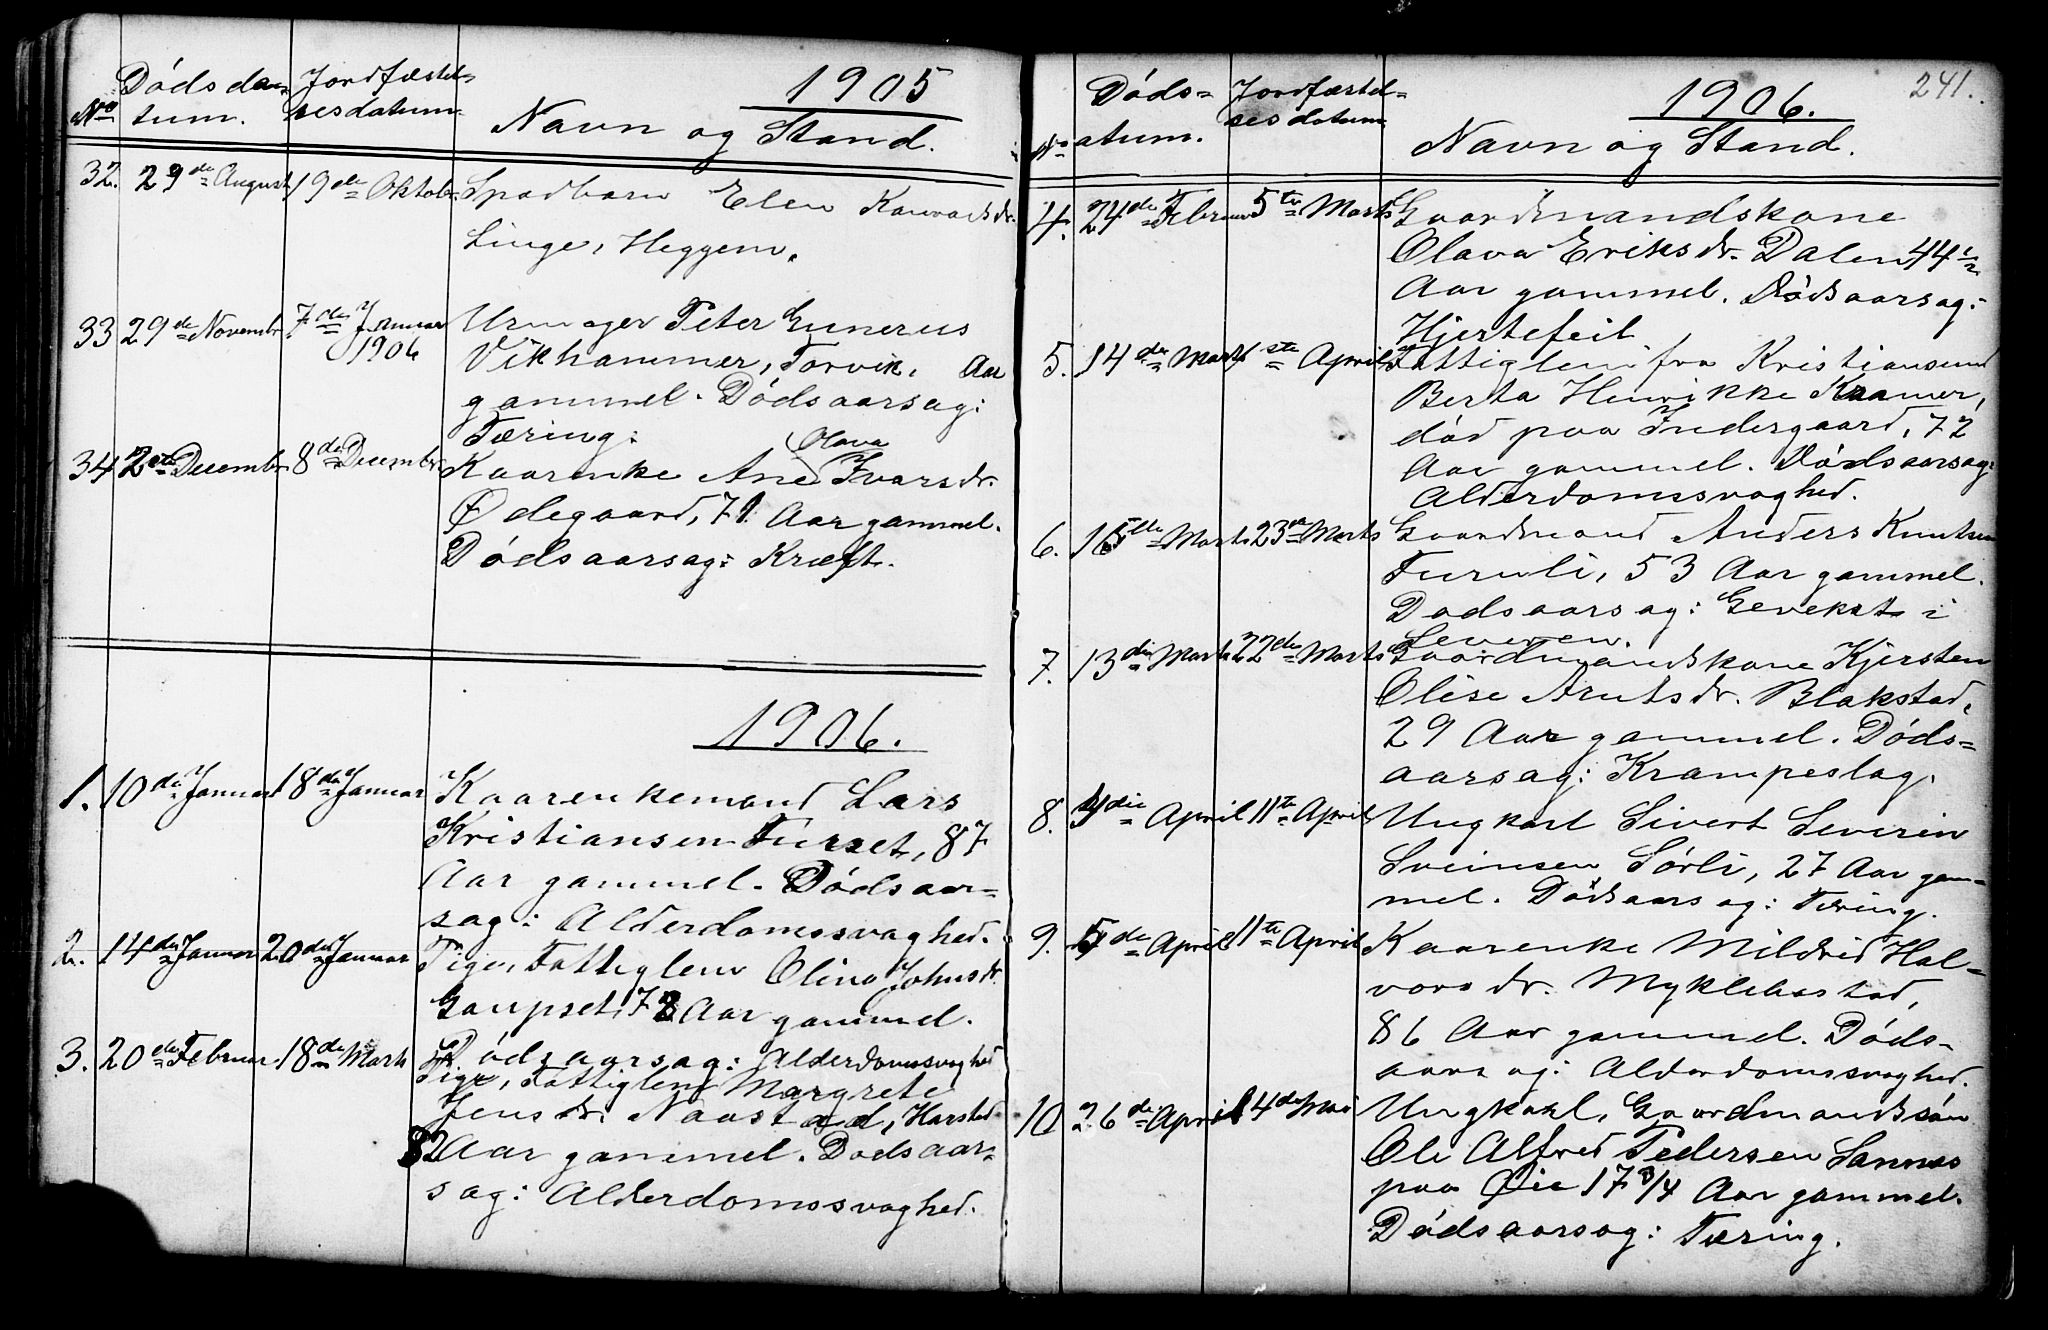 1905
Nº Dødsda= Jordfæstel= Navn og Stand.
tum. sesdatum.
32. 29de August 19de Oktobr. Spædbarn Elen Kanvardsdr.
Linge, Heggem.
33 29de Novembr. 7de Januar 1906 Urmager Peter Gunerus
Vikhammer, Torvik, Aar
gammel. Dødsaarsag:
Tæring.
34 2den Decembr. 8de Decembr. Kaarenke Ane Olava Ivarsdr.
Ødegaard, 71 Aar gammel.
Dødsaarsag: Kræft.
1906.
1. 10de Januar 18de Januar Kaarenkemand Lars
Kristiansen Furset, 87
Aar gammel. Dødsaar=
sag: Alderdomssvaghed.
2. 14de Januar 20de Januar Pige, Fattiglem Olina Johnsdr.
Gaupset, 78 Aar gammel.
Dødsaarsag: Alderdomssvaghed
3. 20de Februar 18de Marts Pige, Fattiglem Margrete
Jensdr. Naastad, Harstad
82 Aar gammel. Dødsaar=
sag: Alderdomssvaghed.
241.
1906.
Nº Døds= Jordfæstel= Navn og Stand.
datum. sesdatum
4. 24de Februar 5te Marts Gaardmandskone
Olava Eriksdr. Dalen, 44 1/2
Aar gammel. Dødsaarsag:
Hjertefeil.
5. 14de Marts 1ste April Fattiglem fra Kristiansund
Berta Henrikke Kramer,
død paa Indergaard, 72
Aar gammel. Dødsaarsag:
Alderdomssvaghed.
6. 16de Marts 23de Marts Gaardmand Anders Knutsen
Furuli, 53 Aar gammel.
Dødsaarsag: Gevekst i
Leveren.
7. 13de Marts 22de Marts Gaardmandskone Kjersten
Olise Arntsdr. Blakstad,
29 Aar gammel. Døds=
aarsag: Krampeslag.
8. 4die April 11te April Ungkarl Sivert Severin
Sveinsen Sørli, 27 Aar gam=
mel. Dødsaarsag: Tæring.
9. 5de April 11te April Kaarenke Mildrid Hal=
vorsdr. Myklebostad,
86 Aar gammel. Døds=
aarsag: Alderdomssvaghed.
10 26de April 4de Mai Ungkarl, Gaardmandssøn
Ole Alfred Pedersen Sannes
paa Øie 17 3/4 Aar gammel.
Dødsaarsag: Tæring.